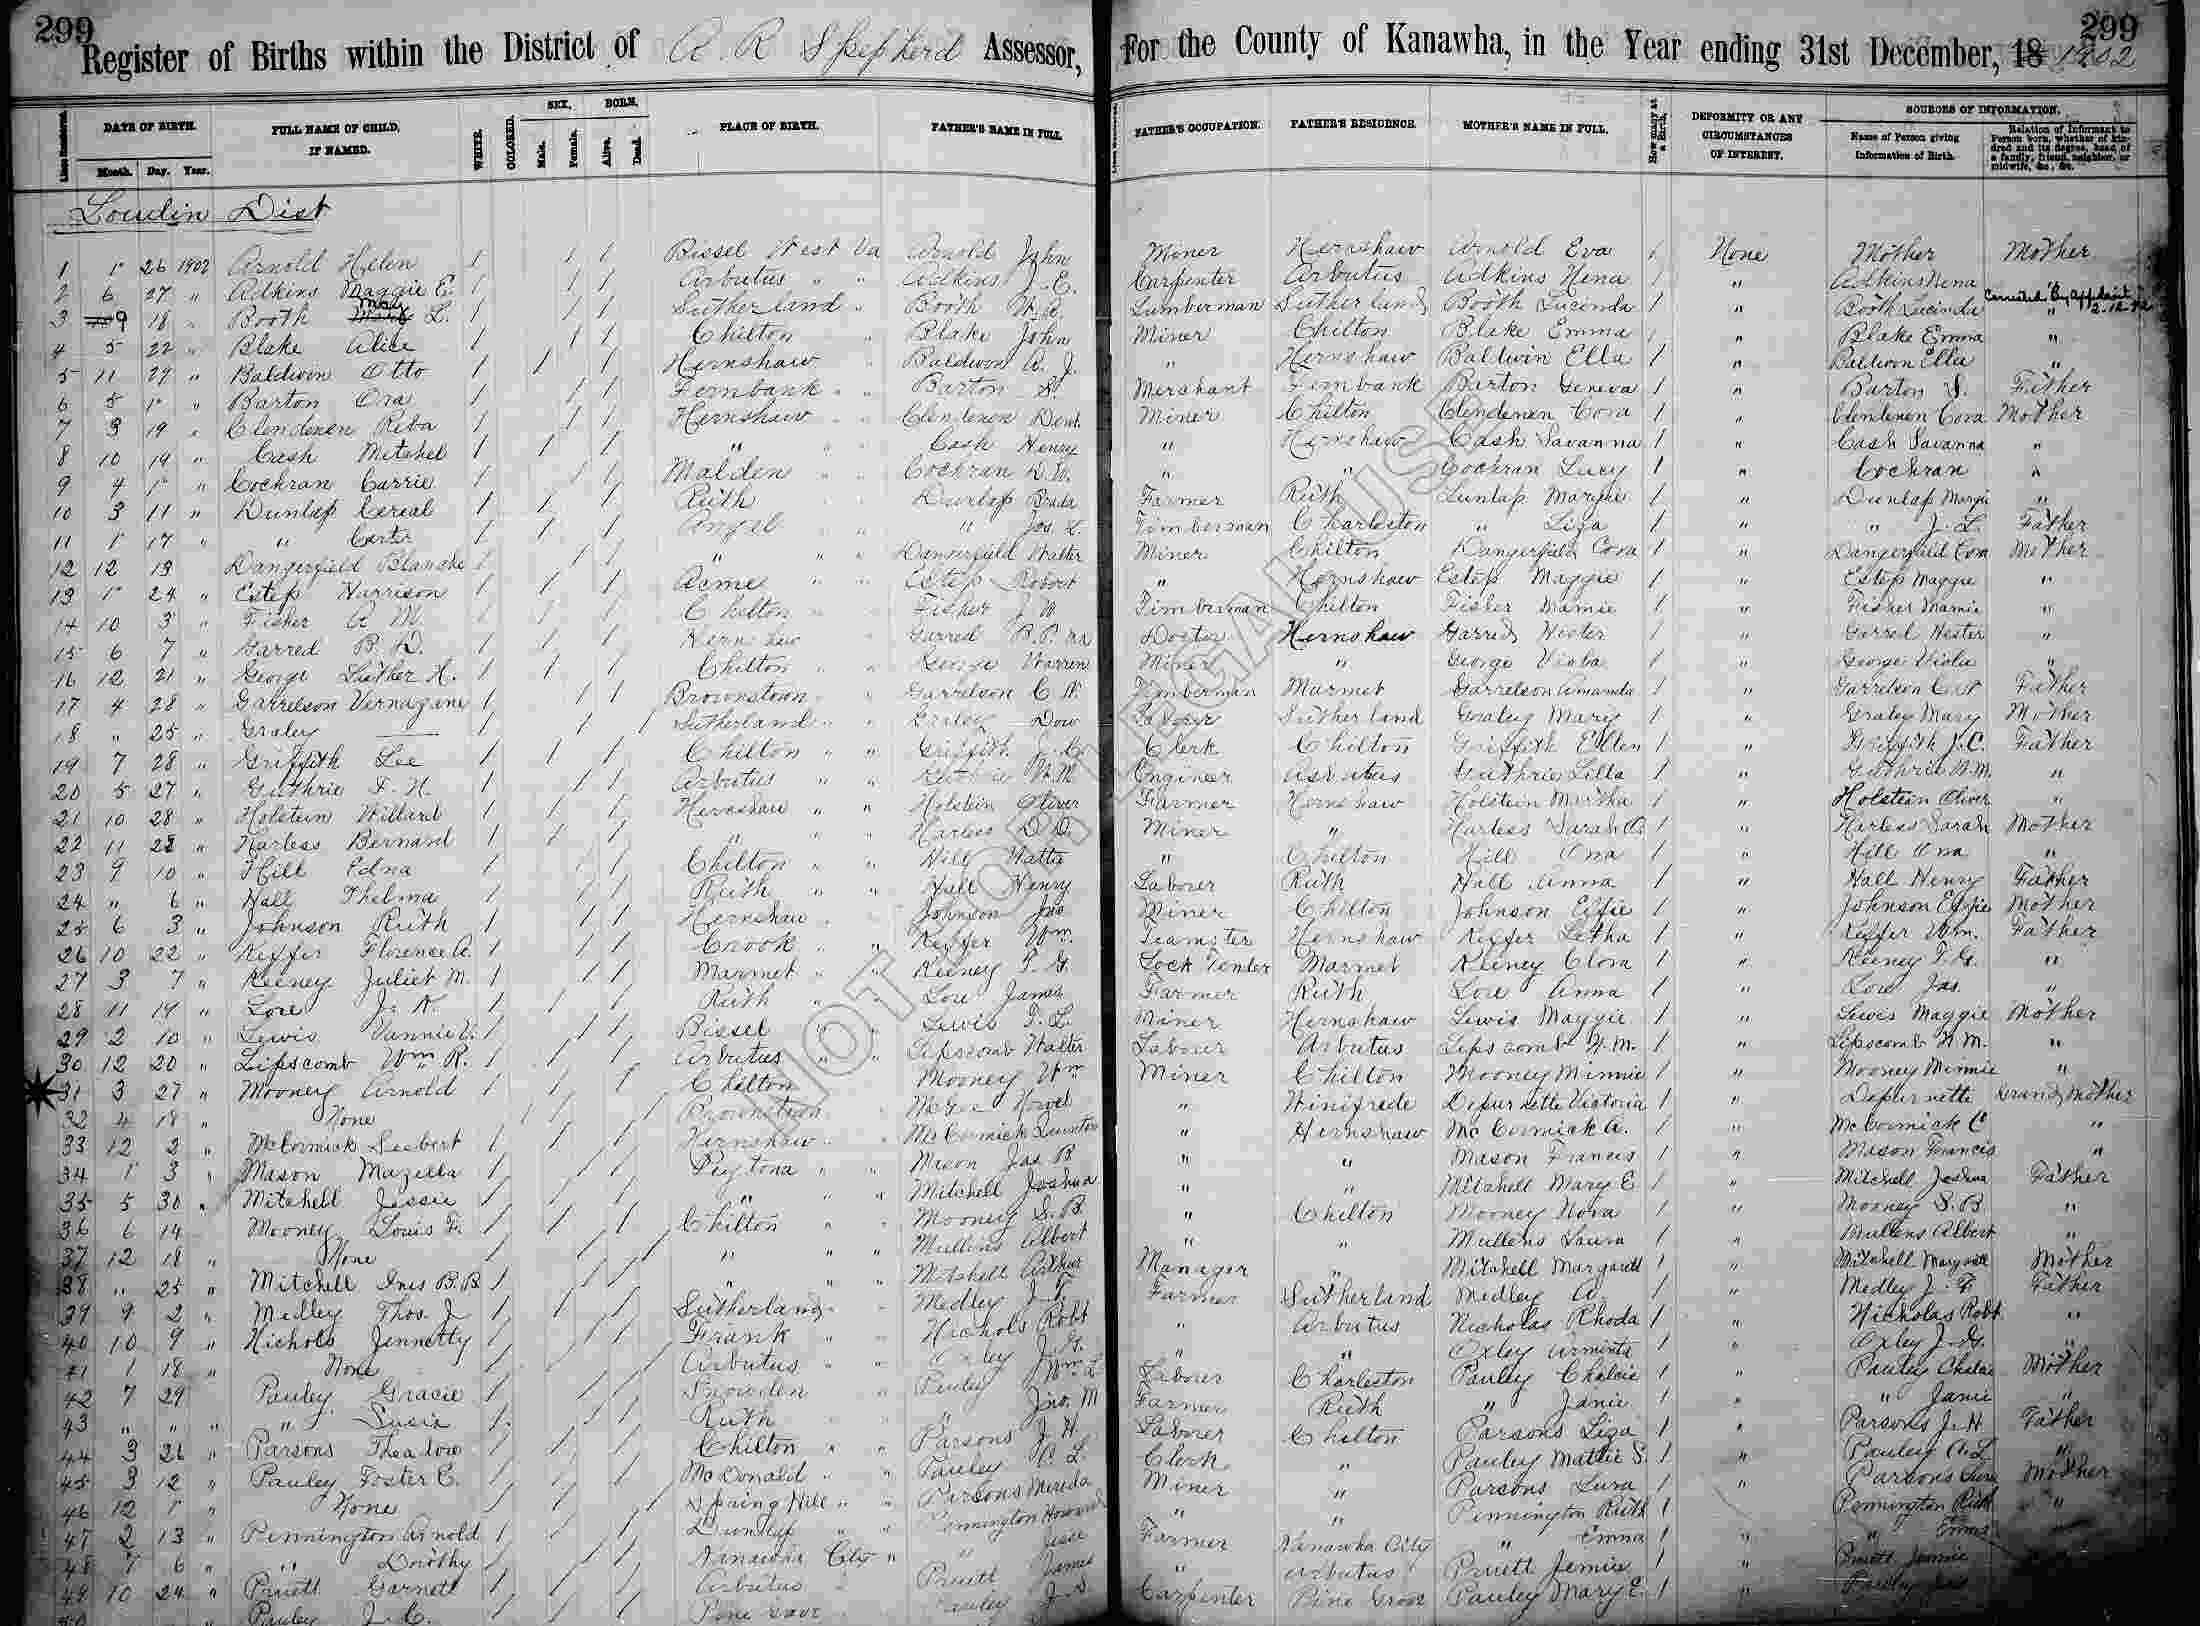 299 299
Register of Births within the District of A. R. Shepherd Assessor, For the County of Kanawha, in the Year ending 31st December, 18 1902
Lines Numbered. DATE OF BIRTH. Month. Day. Year. FULL NAME OF CHILD, IF NAMED. WHITE. COLORED. SEX. Male. Female. BORN. Alive. Dead. PLACE OF BIRTH. FATHER'S NAME IN FULL. FATHER'S OCCUPATION. FATHER'S RESIDENCE. MOTHER'S NAME IN FULL. How many at a Birth. DEFORMITY OR ANY CIRCUMSTANCES OF INTEREST. SOURCES OF INFORMATION. Name of Person giving Information of Birth. Relation of Informant to Person born, whether of kindred and its degree, head of a family, friend, neighbor, or midwife, &c., &c.
Loudin Dist
1 1 26 1902 Arnold Helen 1 / / Bissel West Va Arnold John Miner Hernshaw Arnold Eva 1 None Mother Mother
2 6 27 " Adkins Maggie E. 1 / / Arbutus " " Adkins J. E. Carpenter Arbutus Adkins Nena / " Adkins Nena
3 9 18 " Booth May L. 1 / / Sutherland " Booth W. A. Lumberman Sutherland Booth Lucinda / " Booth Lucinda "
4 5 22 " Blake Alice 1 / / Chilton " Blake John Miner Chilton Blake Emma / " Blake Emma "
5 11 29 " Baldwin Otto 1 / / Hernshaw " Baldwin A. J. " Hernshaw Baldwin Ella 1 " Baldwin Ella "
6 5 1 " Barton Ora 1 / / Fernbank " " Barton S. Merchant Fernbank Barton Geneva 1 " Barton S. Father
7 3 19 " Clendenen Reba 1 / / Hernshaw " " Clendenen Miner Chilton Clendenen Cora 1 " Clendenen Cora Mother
8 10 19 " Cash Mitchel 1 / / " " " Cash Henry " Hernshaw Cash Savanna 1 " Cash Savanna "
9 4 1 " Cochran Carrie 1 / / Malden " " Cochran D. W. " " Cochran Lucy 1 " Cochran "
10 3 11 " Dunlap Cereal 1 / / Ruth " " Dunlap Farmer Ruth Dunlap Margie 1 " Dunlap Margie "
11 1 17 " " Carter 1 / / Angel " " " Jas. L. Timberman Charleston " Liza 1 " " J. L. Father
12 12 13 Dangerfield Blanche 1 / / " " " Dangerfield Walter Miner Chilton Dangerfield Cora 1 " Dangerfield Cora Mother
13 1 24 " Estep Harrison 1 / / Acme " " Estep Robert " Hernshaw Estep Maggie 1 " Estep Maggie "
14 10 3 " Fisher A M. 1 / / Chilton " " Fisher J W Timberman Chilton Fisher Mamie 1 " Fisher Mamie "
15 6 7 " Garred B. D. 1 / / Hernshaw " Garred B. P. Doctor Hernshaw Garred Hester / " Garred Hester "
16 12 21 " George Luther H. 1 / / Chilton " " George Warren Miner " George Viola 1 " George Viola "
17 4 28 " Garrelson Vernazine 1 / / Brownstown " " Garrelson C. N. Timberman Marmet Garrelson Amanda 1 " Garrelson C. N. Father
18 " 25 " Graley 1 / / Sutherland " " Graley Dow Laborer Sutherland Graley Mary 1 " Graley Mary Mother
19 7 28 " Griffith Lee 1 / / Chilton " " Griffith J. C. Clerk Chilton Griffith Ellen 1 " Griffith J. C. Father
20 5 27 " Guthrie F. H. 1 / / Arbutus " " Guthrie W. M. Engineer Arbutus Guthrie Lilla 1 " Guthrie W. M. "
21 10 28 " Holstein Willard 1 / / Hernshaw " " Holstein Oliver Farmer Hernshaw Holstein Martha 1 " Holstein Oliver "
22 11 22 " Harless Bernard 1 / / " " " Harless D. D. Miner " Harless Sarah 1 " Harless Sarah Mother
23 9 10 " Hill Edna 1 / / Chilton " " Hill " Chilton Hill Ona / " Hill Ona "
24 " 6 " Hall Thelma 1 / / Ruth " " Hall Henry Laborer Ruth Hall Anna 1 " Hall Henry Father
25 6 3 " Johnson Ruth 1 / / Hernshaw " Johnson Jas Miner Chilton Johnson Effie 1 " Johnson Effie Mother
26 10 22 " Keffer Florence A. 1 / / Crook " " Keffer Wm. Teamster Hernshaw Keffer Letha 1 " Keffer Wm. Father
27 3 7 " Keeney Juliet M. 1 / / Marmet " " Keeney F. G. Lock Tender Marmet Keeney Clora 1 " Keeney F. G. "
28 11 19 " Lore J. H. 1 / / Ruth " " Lore James Farmer Ruth Lore Anna 1 " Lore Jas. "
29 2 10 " Lewis Vannie E. 1 / / Bissel " " Lewis F. L. Miner Hernshaw Lewis Maggie 1 " Lewis Maggie Mother
30 12 20 " Lipscomb Wm R. 1 / / Arbutus " " Lipscomb Walter Labour Arbutus Lipscomb W. M. 1 " Lipscomb W. M. "
31 3 27 " Mooney Arnold 1 / / Chilton Mooney Wm Miner Chilton Mooney Minnie 1 " Mooney Minnie "
32 4 18 " None / / Brownstown McGee " Winifrede Depurnette Victoria 1 " Depurnette Grand Mother
33 12 2 " McCormick Seebert 1 / / Hernshaw " " McCormick " Hernshaw McCormick A. 1 " McCormick C "
34 1 3 " Mason Mazella 1 / / Peytona " " Mason Jas B " " Mason Francis 1 " Mason Francis "
35 5 30 " Mitchell Jessie 1 / / " " " Mitchell Joshua " " Mitchell Mary E 1 " Mitchell Joshua Father
36 6 14 Mooney Louis F. 1 / / Chilton " " Mooney S. B. " Chilton Mooney Nora 1 " Mooney S. B. "
37 12 18 " None 1 / / " " " Mullins Albert " " Mullens Laura 1 " Mullens Albert "
38 " 25 " Mitchell Ines B. B 1 / / " " " Mitchell Arthur Manager " Mitchell Margarett " Mitchell Margarett Mother
39 9 2 " Medley Thos. J. 1 / / Sutherland " Medley J. F. Farmer Sutherland Medley A. / " Medley J. F Father
40 10 9 " Nichols Jennetty 1 / / Frank " " Nichols Robt " Arbutus Nicholas Rhoda 1 " Nicholas Robt "
41 1 18 " None 1 / / Arbutus " " Oxley J. G. " " Oxley Arminta 1 " Oxley J. G. "
42 7 29 Pauley Gracie 1 / / Snowden " Pauley Wm L Labour Charleston Pauley Chalcie 1 " Pauley Chalcie Mother
43 " " " " Susie 1 / / Ruth " Jno. M Farmer Ruth " Janie 1 " " Janie "
44 3 26 " Parsons Thealow 1 / / Chilton " " Parsons J. H Laborer Chilton Parsons Liza 1 " Parsons J. H Father
45 3 12 " Pauley Foster E. 1 / / McDonald " " Pauley A. L. Clerk " Pauley Mattie S. 1 " Pauley A. L "
46 12 1 " None / / Spring Hill " " Parsons Mereda Miner " Parsons Lura 1 " Parsons Lura Mother
47 2 13 " Pennington Arnold 1 / / Dunlap " " Pennington Howard " " Pennington Ruth 1 Pennington Ruth "
48 7 6 " " Dorothy 1 / / Kanawha City " " Jesse Farmer Kanawha City " Emma 1 " " Emma
49 10 24 " Pruett Garnett 1 / / Arbutus " Pruett James " Arbutus Pruett Jennie 1 " Pruett Jennie
50 " Pauley J. C. 1 / / Pine Pauley J. S Carpenter Pine Grove Pauley Mary E. 1 " Pauley
NOT FOR LEGAL USE